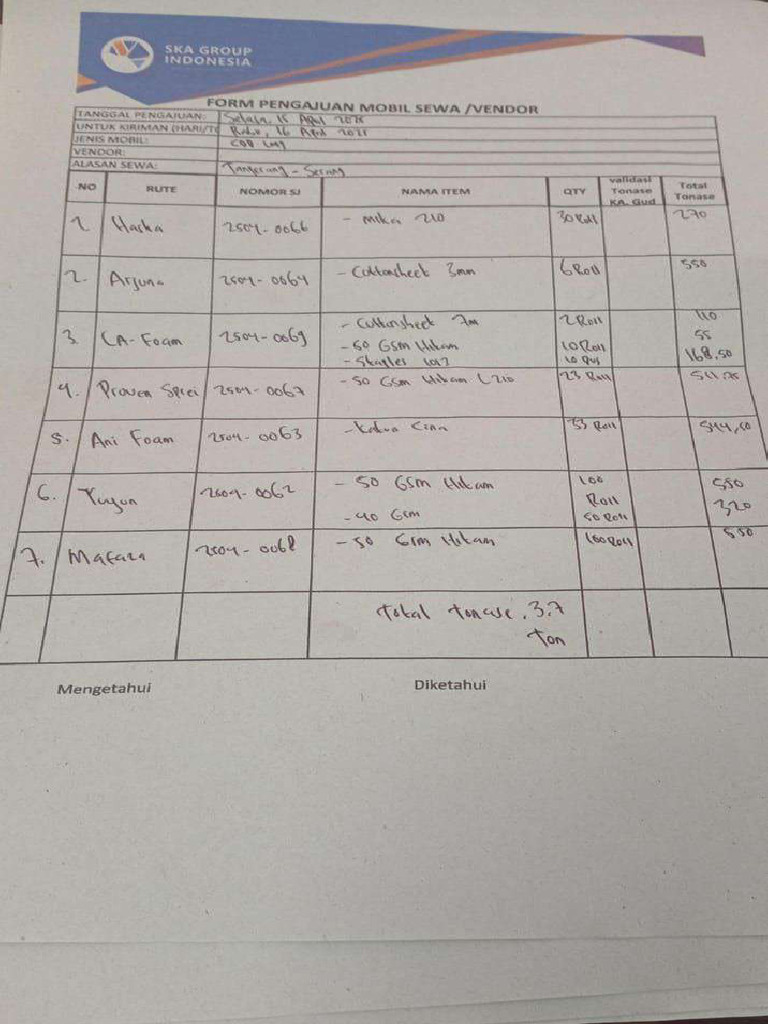 SKA GROUP
INDONESIA
FORM PENGAJUAN MOBIL SEWA /VENDOR
TANGGAL PENGAJUAN: Selasa, 15 April 2025
UNTUK KIRIMAN (HARI/T Rabu, 16 April 2025
JENIS MOBIL: CDD
VENDOR:
ALASAN SEWA: Tangerang - Serang
NO RUTE NOMOR SJ NAMA ITEM QTY validasi Tonase KA. Gud Total Tonase
1 Haska 2504-0066 - Mika 210 30 Roll 270
2. Arjuna 2504-0064 - Cottonsheet 3mm 6 Roll 550
3. CA-Foam 2504-0069 - Cottonsheet 7m 2 Roll 110
- 50 Gsm Hitam 10 Roll 55
- Stapler 1013 10 168,50
4. Proven Sprei 2504-0067 - 50 Gsm Hitam L 210 23 Roll 511.75
5. Ani Foam 2504-0063 - 33 Roll 544,50
6. Yuyun 2504-0062 - 50 GSm Hitam 100 Roll 550
- 40 Gsm 50 Roll 320
7. Mafaza 2504-0068 - 50 Gsm Hitam 100 Roll 550
Total tonase . 3.7
Ton
Mengetahui Diketahui